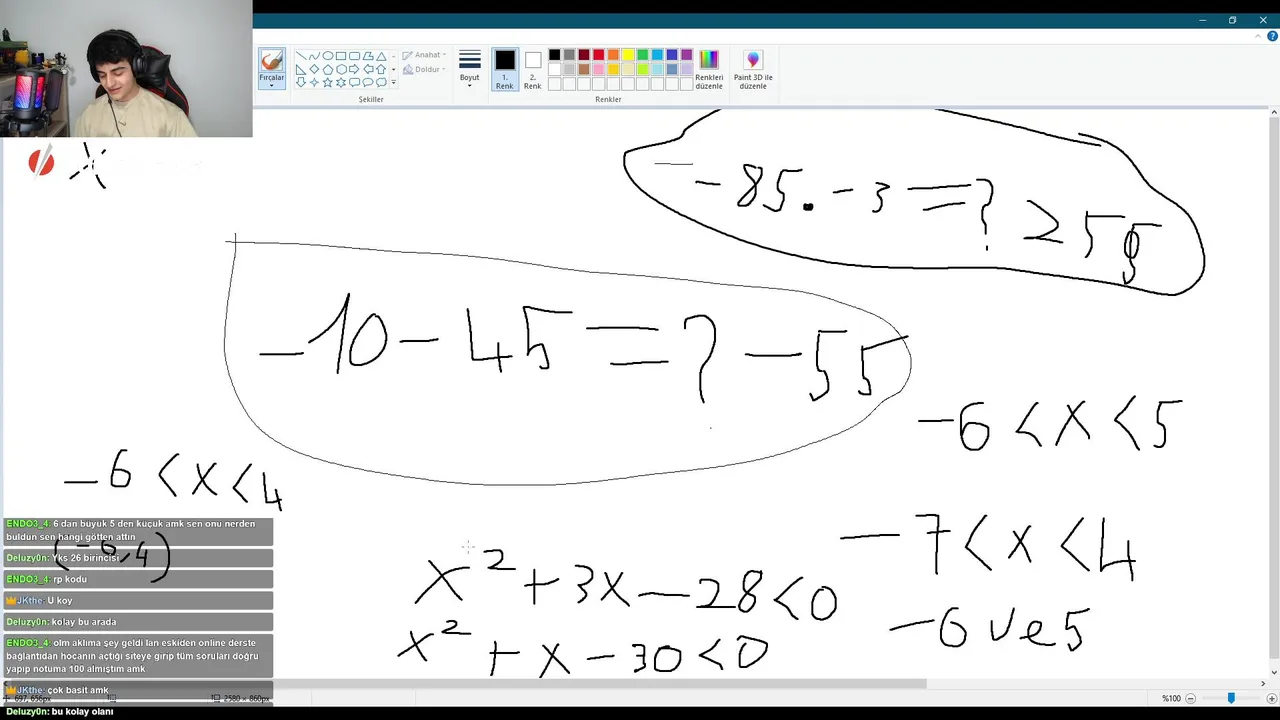 Fırçalar
Şekiller
Anahat
Doldur
Boyut
1.
Renk
2.
Renk
Renkler
Renkleri
düzenle
Paint 3D ile
düzenle
X
- -85. -3 = ? 255
-10 - 45 = ? -55
-6 < x < 5
-6 < x < 4
(-6, 4)
-7 < x < 4
x² + 3x - 28 < 0
-6 ve 5
x² + x - 30 < 0
ENDO3_4: 6 dan buyuk 5 den kuçuk amk sen onu nerden
buldun sen hangi götten attın
Deluzy0n: Yks 26 birincisi
ENDO3_4: rp kodu
JKthe: U koy
Deluzy0n: kolay bu arada
ENDO3_4: olm aklıma şey geldi lan eskiden online derste
bağlantıdan hocanın açtığı siteye girip tüm soruları doğru
yapıp notuma 100 almıştım amk
JKthe: çok basit amk
Deluzy0n: bu kolay olanı
697, 656px
2580 × 860px
%100